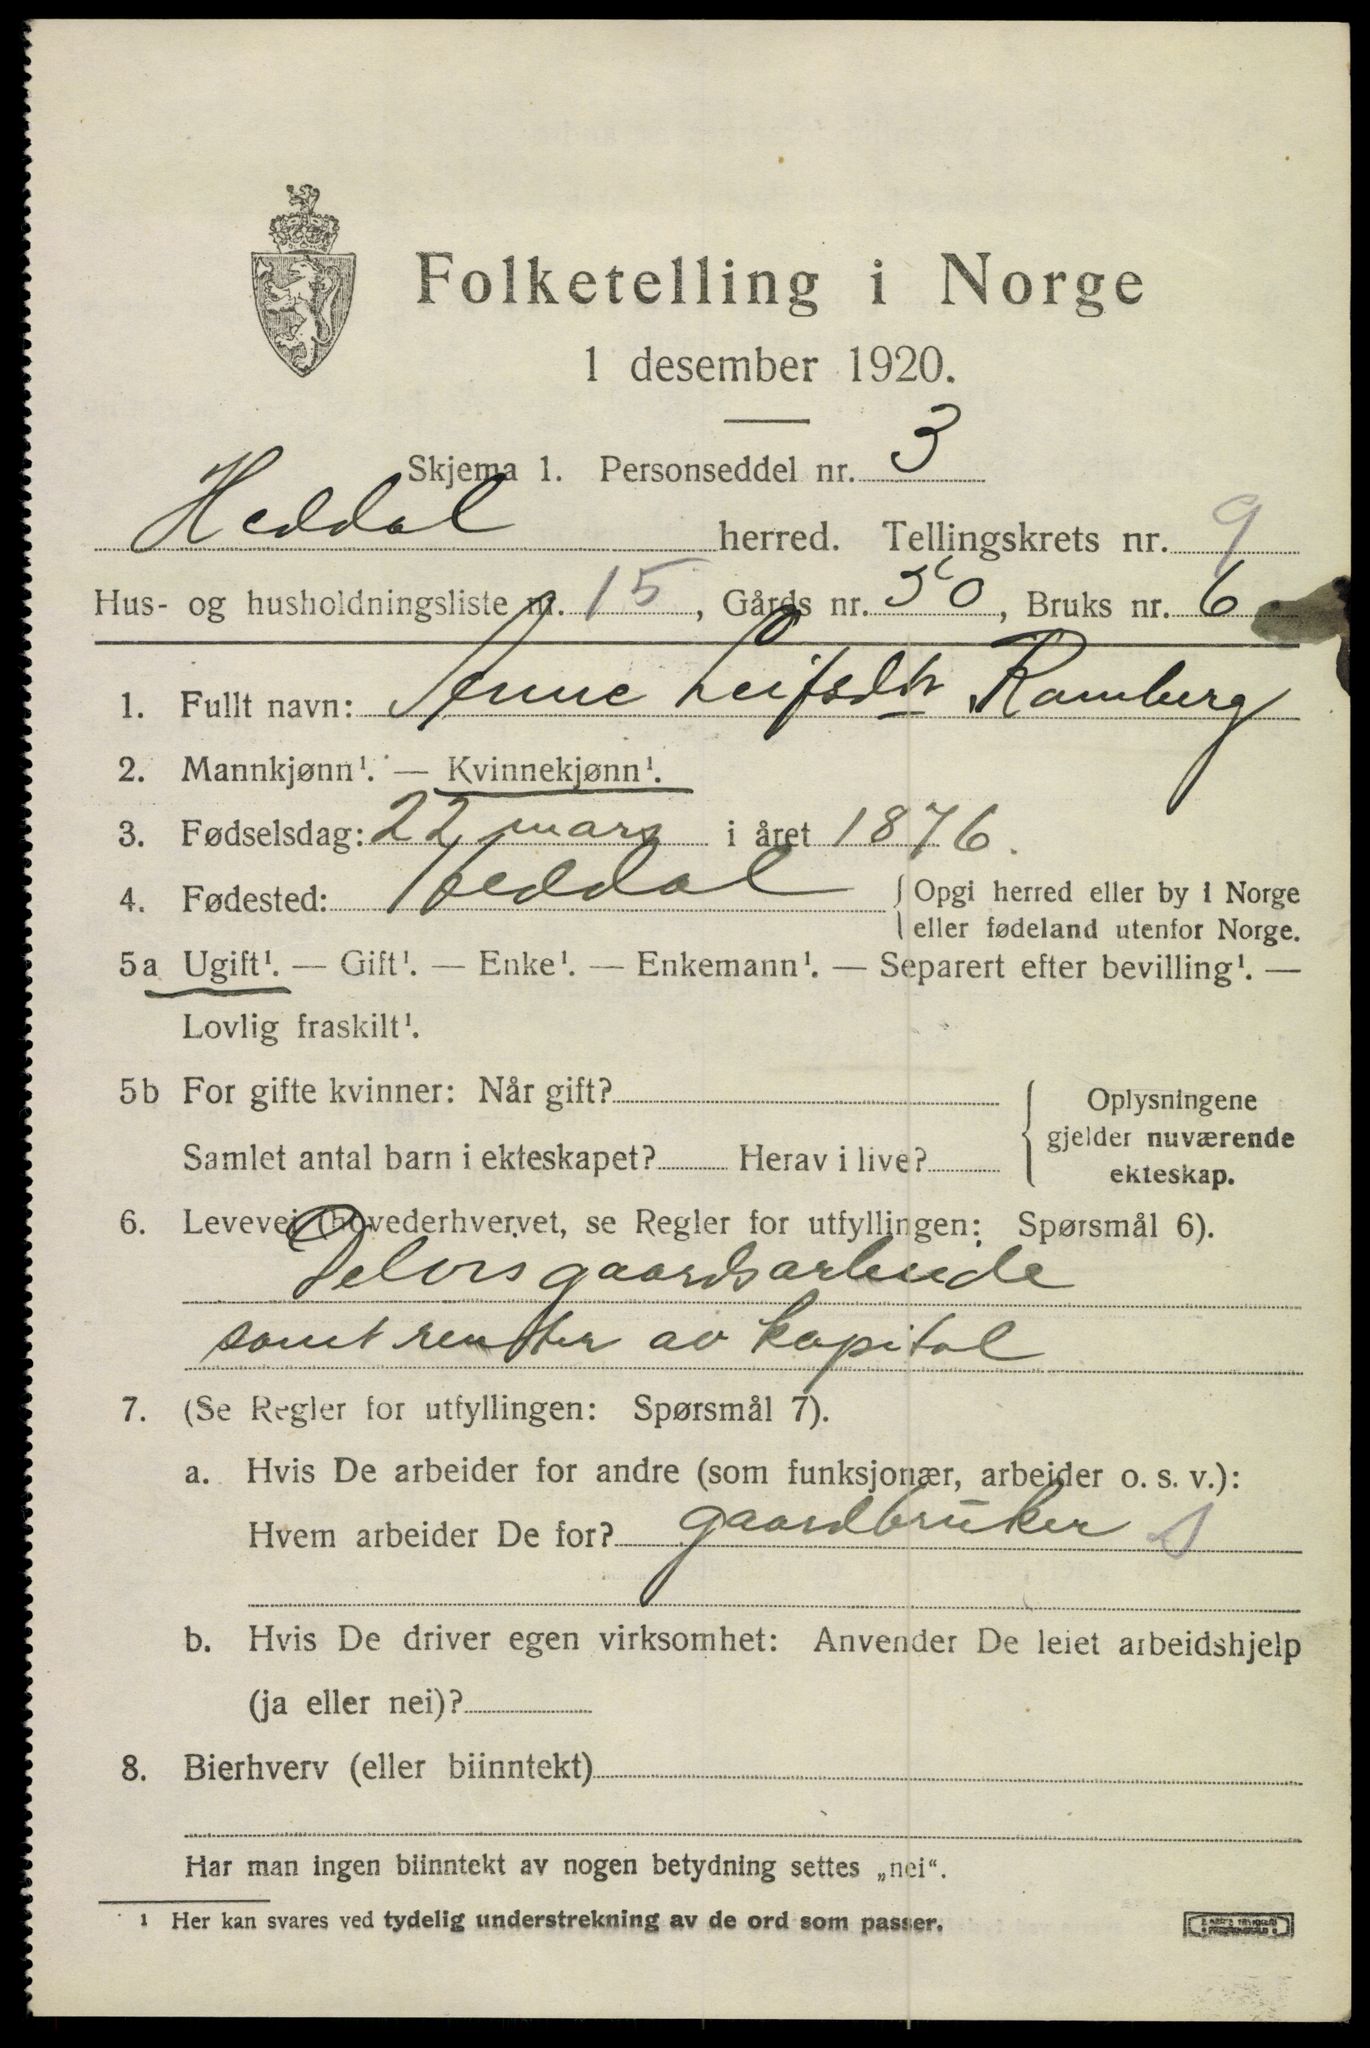 Folketelling i Norge
1 desember 1920.
Skjema 1. Personseddel nr. 3
Heddal herred. Tellingskrets nr. 9
Hus- og husholdningsliste nr. 15, Gårds nr. 50, Bruks nr. 6
1. Fullt navn: Anne Leifsdtr Ramberg
2. Mannkjønn¹. — Kvinnekjønn¹.
3. Fødselsdag: 22 mars i året 1876.
4. Fødested: Heddal { Opgi herred eller by i Norge
eller fødeland utenfor Norge.
5a Ugift¹. — Gift¹. — Enke¹. — Enkemann¹. — Separert efter bevilling¹. —
Lovlig fraskilt¹.
5b For gifte kvinner: Når gift?
Samlet antal barn i ekteskapet? Herav i live?
Oplysningene
gjelder nuværende
ekteskap.
6. Levevei (hovederhvervet, se Regler for utfyllingen: Spørsmål 6).
Delvis gaardsarbeide
samt renter av kapital
7. (Se Regler for utfyllingen: Spørsmål 7).
a. Hvis De arbeider for andre (som funksjonær, arbeider o. s. v.):
Hvem arbeider De for? gaardbruker
b. Hvis De driver egen virksomhet: Anvender De leiet arbeidshjelp
(ja eller nei)?
8. Bierhverv (eller biinntekt)
Har man ingen biinntekt av nogen betydning settes „nei“.
1 Her kan svares ved tydelig understrekning av de ord som passer.